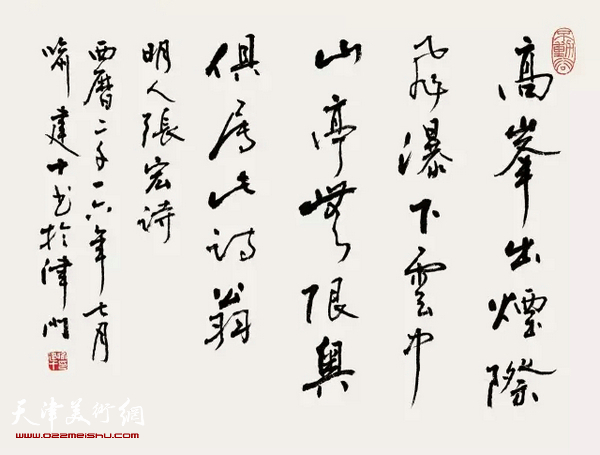 高峯出煙際
飛瀑下雲中
山亭無限興
俱屬此詩翁
明人張宏詩
西曆二千一六年七月
喻建十书於津门
天津美術網
www.022meishu.com